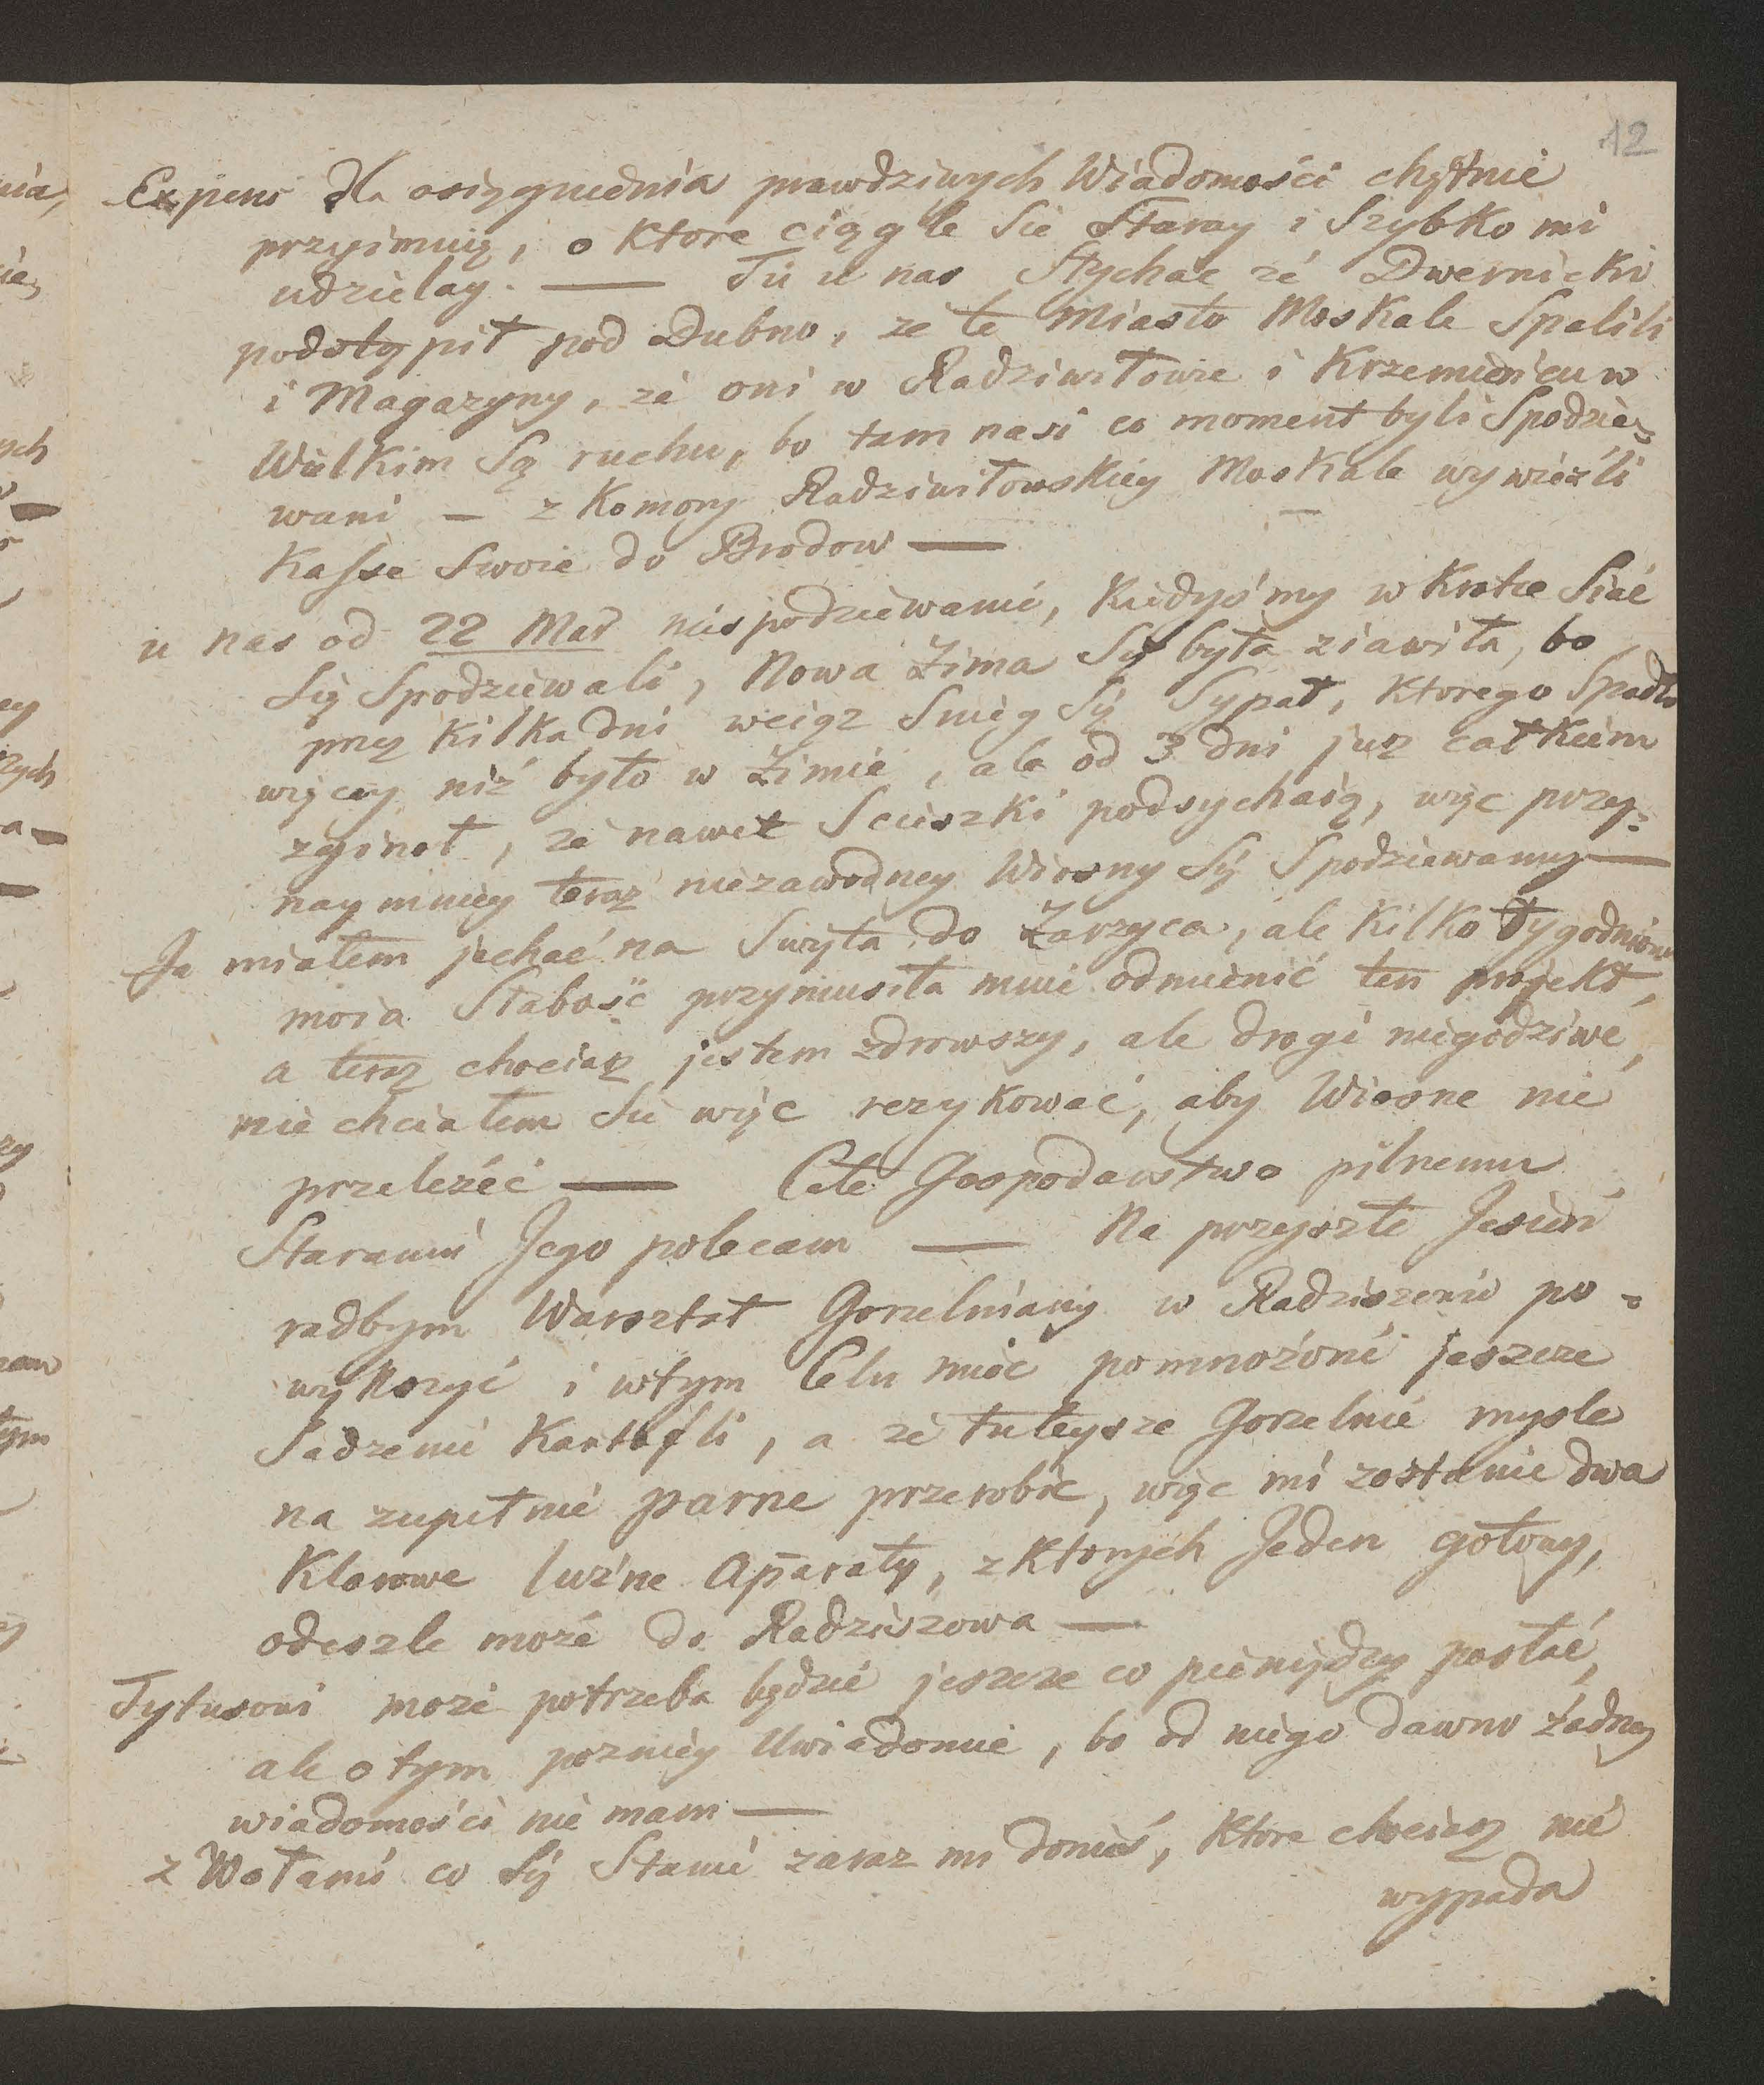 12
Expens dla osięgnienia prawdziwych Wiadomości chętnie
przyimuię, o ktore ciągle Sie Staray i Szybko mi
udzielay. — Tu u nas Słychac że Dwernicki
podstąpił pod Dubno, że te Miasto Moskale Spalili
i Magazyny, że oni w Radziwiłowie i Krzemieńcu w
Wielkim Są ruchu, bo tam nasi co moment byli Spodzie=
wani — z Komory Radziwiłowskiey Moskale wywieźli
Kasse Swoie do Brodow —
u nas od 22 Mar niespodziewanie, Kiedyśmy w Krotce Siać
Się Spodziewali, Nowa Zima Się była ziawiła, bo
przez Kilka dni wciąz Snieg Się Sypał, Ktorego Spadło
więcey niż było w Zimie, ale od 3 dni juz całkiem
zginoł, że nawet Scieszki podsychaią, więc przy=
naymniey teraz niezawodney Wiosny Się Spodziewamy —
Ja miałem jechać na Swięta do Zarzyca, ale Kilko tygodniowa
moia Słabość przymusiła mnie odmienić ten projekt,
a teraz chociaz jestem zdrowszy, ale drogi niegodziwe,
nie chciałem Sie więc rezykować, aby Wiosne nie
przeleżéć — Całe Gospodarstwo pilnemu
Staraniu Jego polecam — Na przyszłe Jesień
radbym Warsztat Gorzelniany w Radziszowie po=
większyć i wtym Celu mieć pomnożone jeszcze
Sadzenie Kartofli, a że tuteysze Gorzelnie mysle
na zupełnie parne przerobić, więc mi zostanie dwa
Klarowe luźne Aparaty, z Ktorych Jeden gotowy,
odeszle może do Radziszowa —
Tytusowi może potrzeba będzie jeszcze co pieniędzy posłać,
ale o tym pozniey Uwiadomie, bo od niego dawno żadney
wiadomości nie mam —
z Wołami co Się Stanie zaraz mi donieś, Ktore chociaz nie
wypada